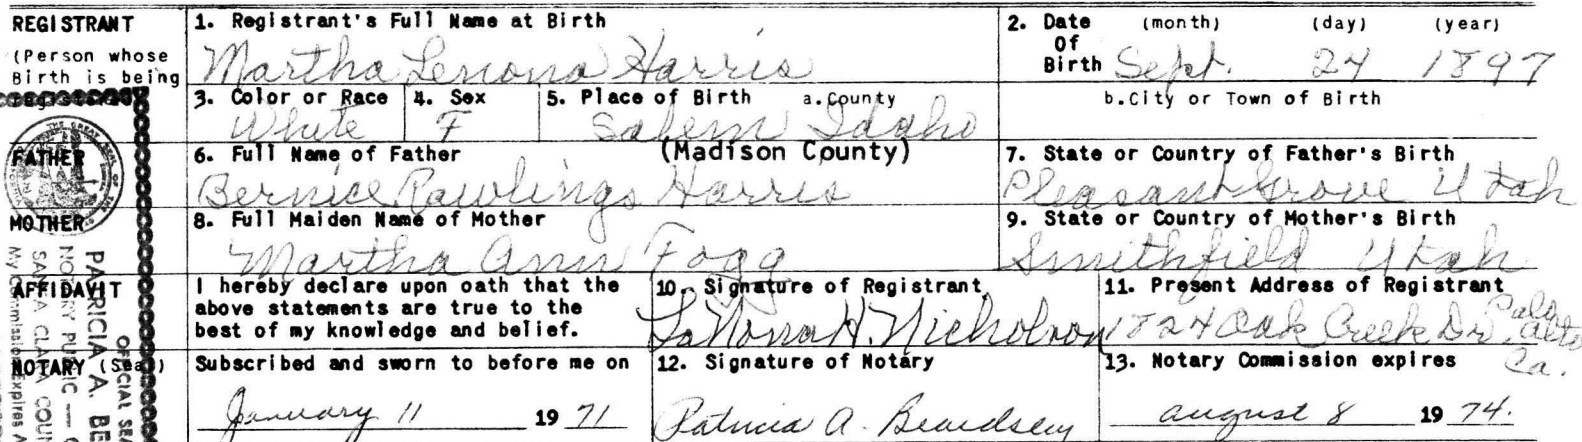 REGISTRANT
(Person whose
Birth is being
1. Registrant's Full Name at Birth
Martha Lenona Harris
2. Date Of Birth (month) (day) (year)
Sept. 24 1897
3. Color or Race
White
4. Sex
F
5. Place of Birth a. County
Salem Idaho
(Madison County)
b. City or Town of Birth
FATHER
6. Full Name of Father
Bernice Rawlings Harris
7. State or Country of Father's Birth
Pleasant Grove Utah
MOTHER
8. Full Maiden Name of Mother
Martha Ann Fogg
9. State or Country of Mother's Birth
Smithfield Utah
AFFIDAVIT
I hereby declare upon oath that the
above statements are true to the
best of my knowledge and belief.
10. Signature of Registrant
LaNona H. Nicholson
11. Present Address of Registrant
1824 Oak Creek Dr. Palo Alto Ca.
NOTARY (Seal)
Subscribed and sworn to before me on
January 11 19 71
12. Signature of Notary
Patricia A. Beardsley
13. Notary Commission expires
august 8 19 74.
OFFICIAL SEA
PATRICIA A. BE
NOTARY PUBLIC —
SANTA CLARA COUN
My Commission Expires A